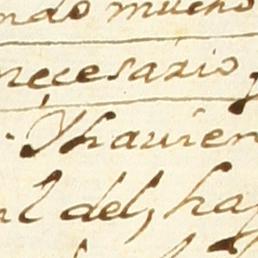 ndo mucho
neçesario
Yhauien
l del, ha